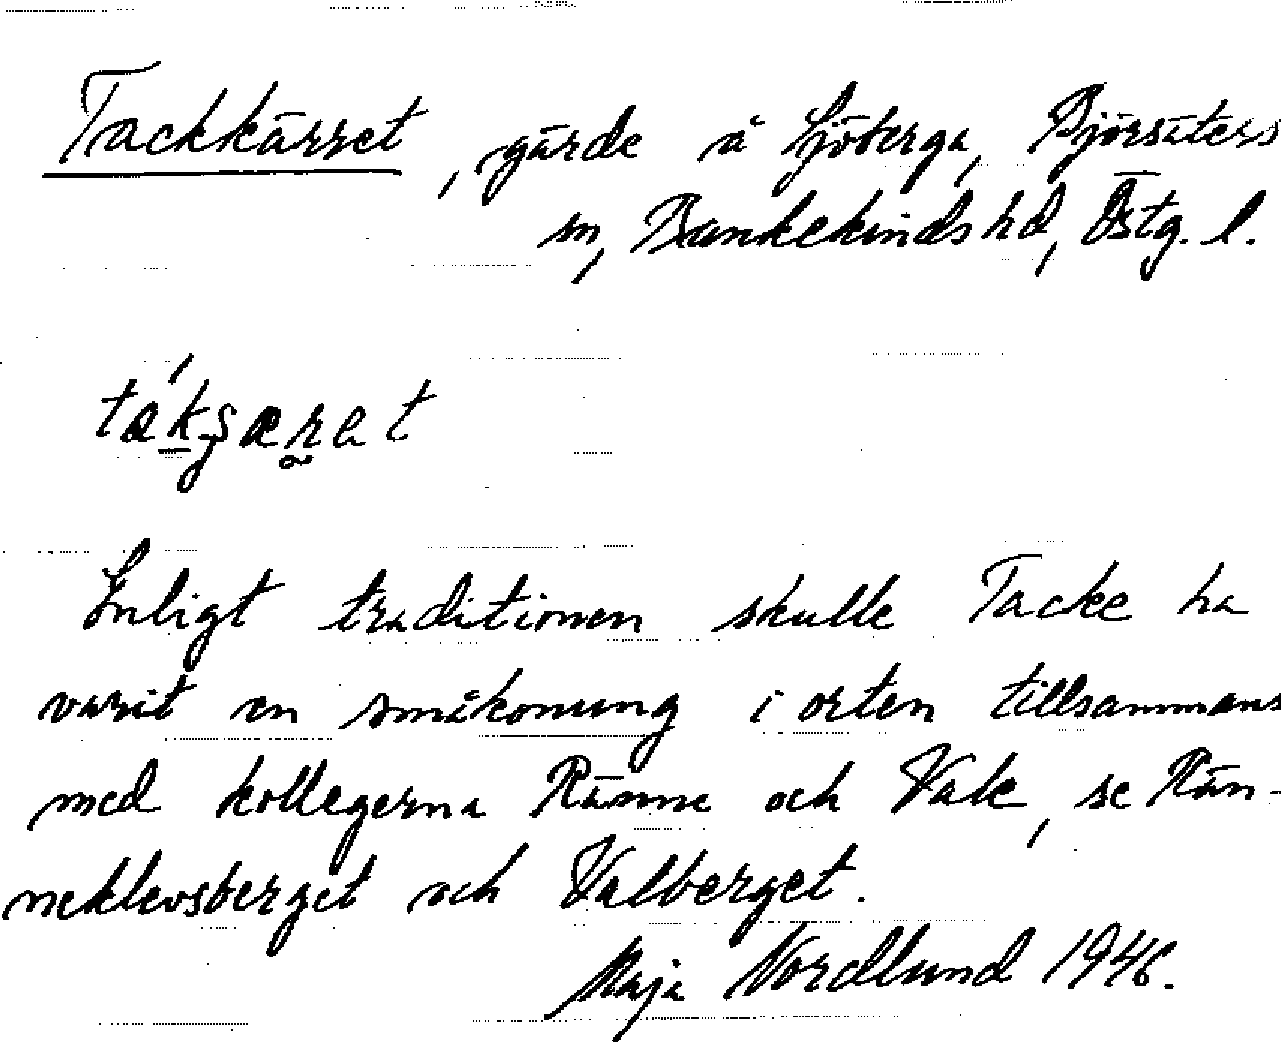 Tackkärret, gärde å Sjöberga, Björsäters
sn, Bankekinds hd, Östg. l.
Enligt traditionen skulle Tacke ha
varit en småkonung i orten tillsammans
med kollegerna Ränne och Vale, se Rän-
neklevsberget och Valberget.
Maja Nordlund 1946.